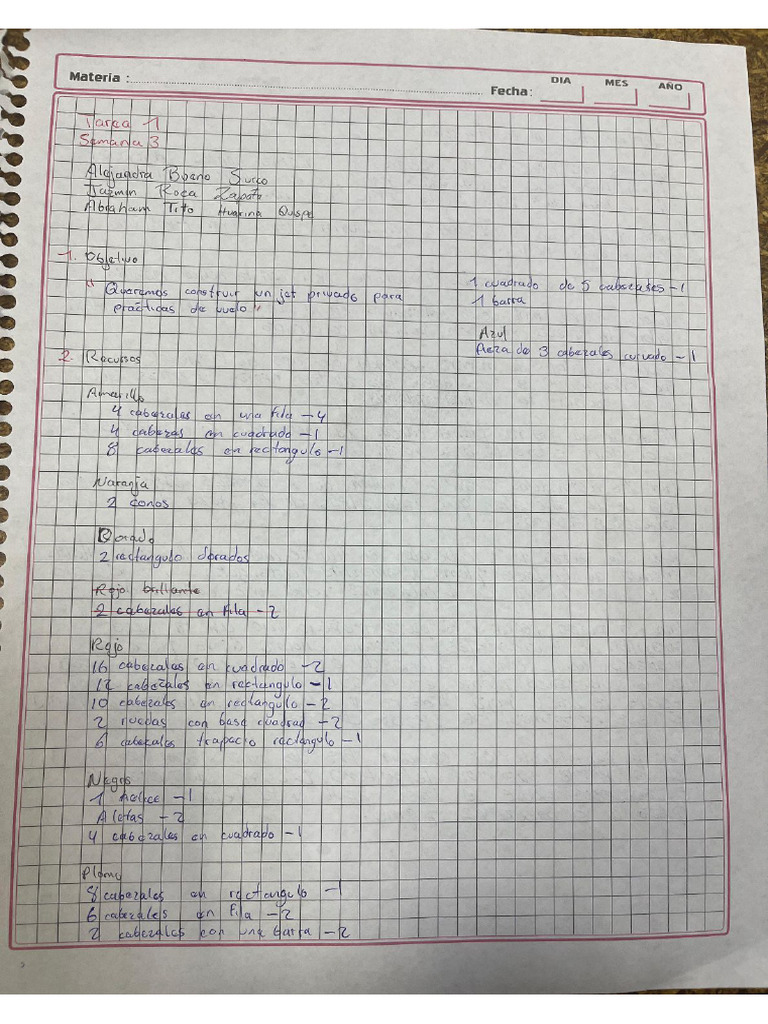 Materia :
Fecha:
DIA MES AÑO
Tarea 1
Semana 3
Alejandra Bueno Surco
Jazmin Roca Zapata
Abraham Tito Huarina Quispe
1. Objetivo
" Queremos construir un jet privado para
prácticas de vuelo "
2. Recursos
Amarillo
4 cabezales en una fila - 4
4 cabezas en cuadrado - 1
8 cabezales en rectangulo - 1
Naranja
2 conos
Dorado
2 rectangulo dorados
Rojo brillante
2 cabezales en fila - 2
Rojo
16 cabezales en cuadrado - 2
12 cabezales en rectangulo - 1
10 cabezales en rectangulo - 2
2 ruedas con base cuadrad - 2
6 cabezales trapecio rectangulo - 1
Negos
1 helice - 1
Aletas - 2
4 cabezales en cuadrado - 1
Plomo
8 cabezales en rectangulo - 1
6 cabezales en fila - 2
2 cabezales con una barra - 2
1 cuadrado de 5 cabezales - 1
1 barra
Azul
de 3 cabezales curvado - 1